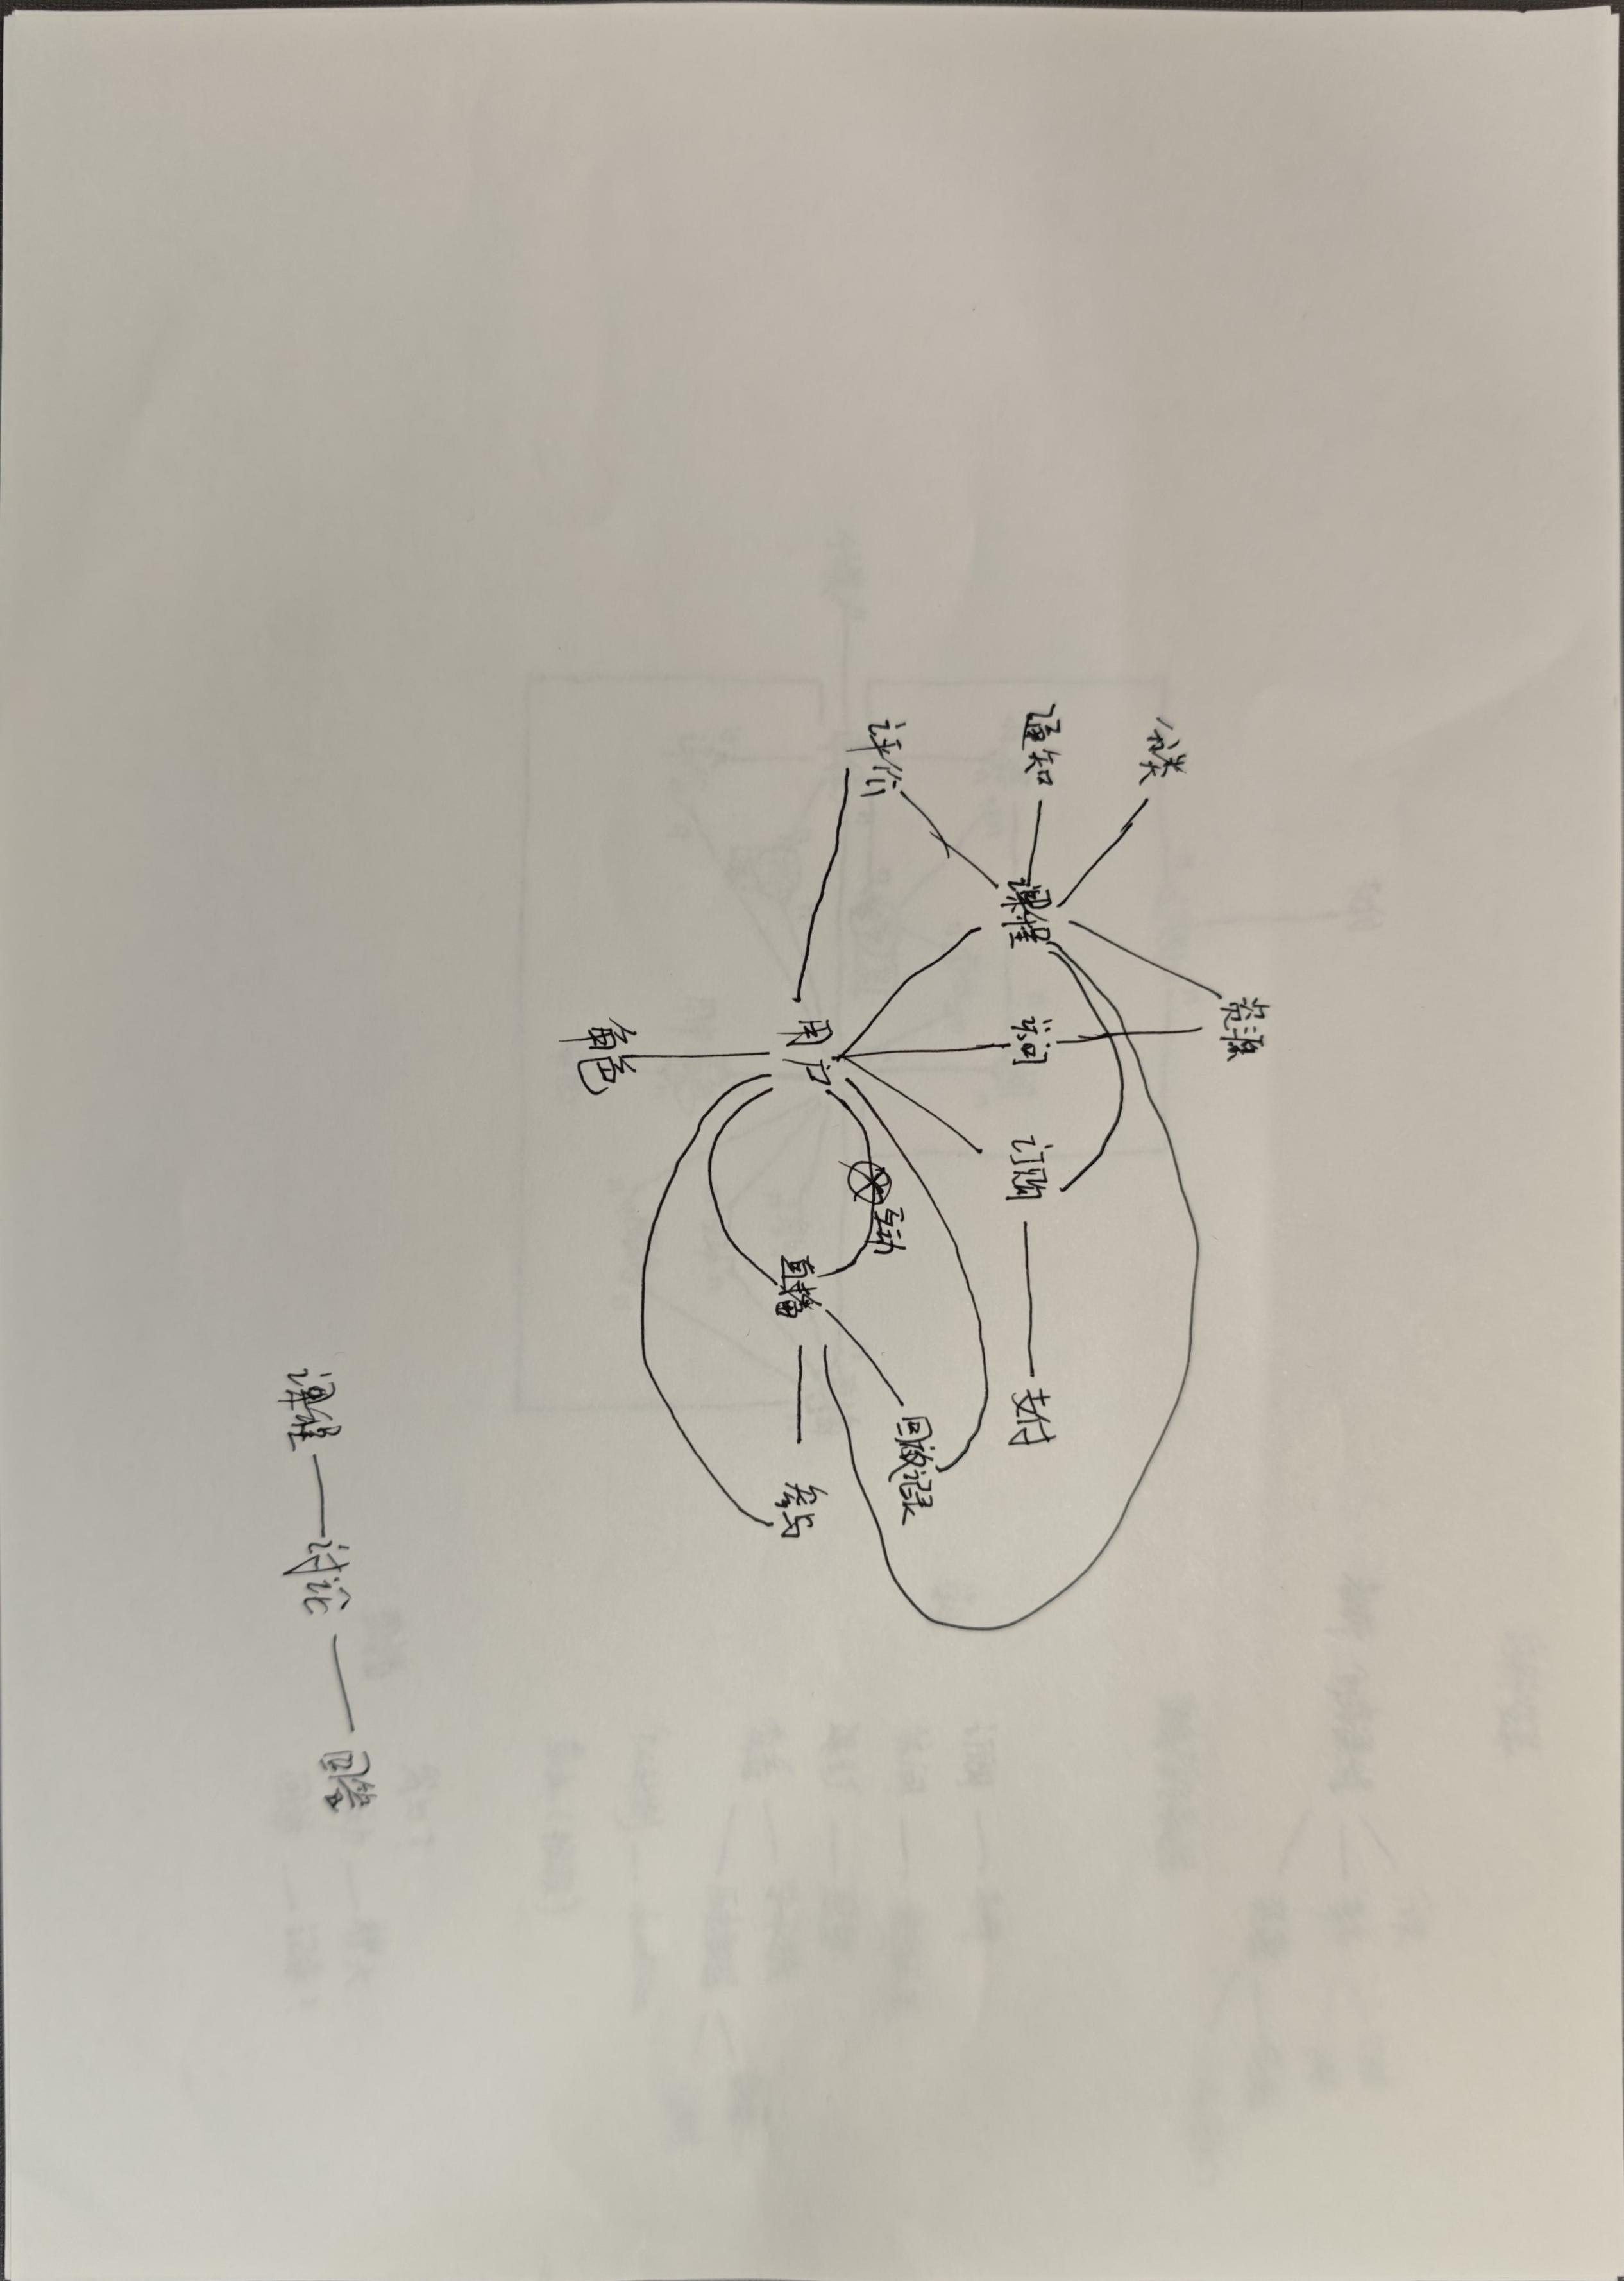 资源
分类
通知 课程 访问 订购 支付
回放记录
评价 互动
用户 直播 参与
角色
课程 讨论 回答